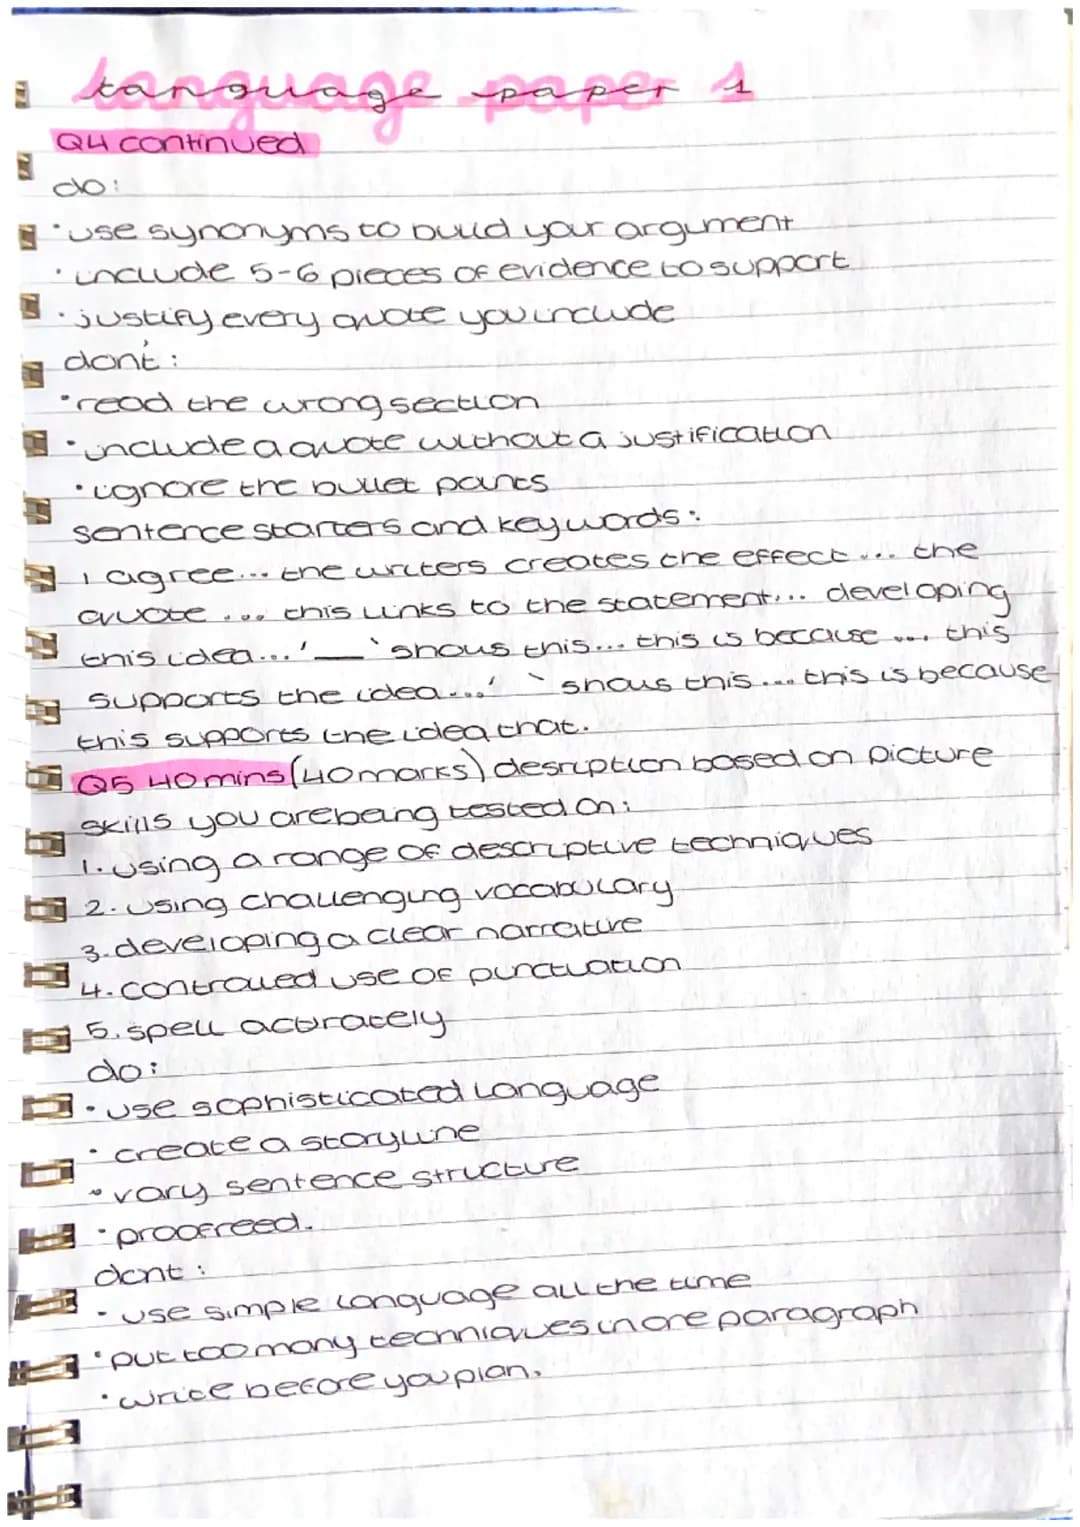 language paper 1
Q4 continued
do:
·use synonyms to build your argument
·include 5-6 pieces of evidence to support
·justify every quote you include
dont':
·read the wrong section
·include a quote without a justification
·ignore the bullet points
sentence starters and key words:
I agree... the writers creates the effect ... the
quote ... this links to the statement... developing
this idea...'__` shows this... this is because ... this
supports the idea...' ` shows this ... this is because
this supports the idea that.
Q5 40 mins (40 marks) desription based on picture
skills you are being tested on:
1. using a range of descriptive techniques
2. using challenging vocabulary
3. developing a clear narrative
4. controlled use of punctuation
5. spell accurately
do:
·use sophisticated language
·create a storyline
·vary sentence structure
·proofreed.
dont:
·use simple language all the time
·put too many techniques in one paragraph
·write before you plan.